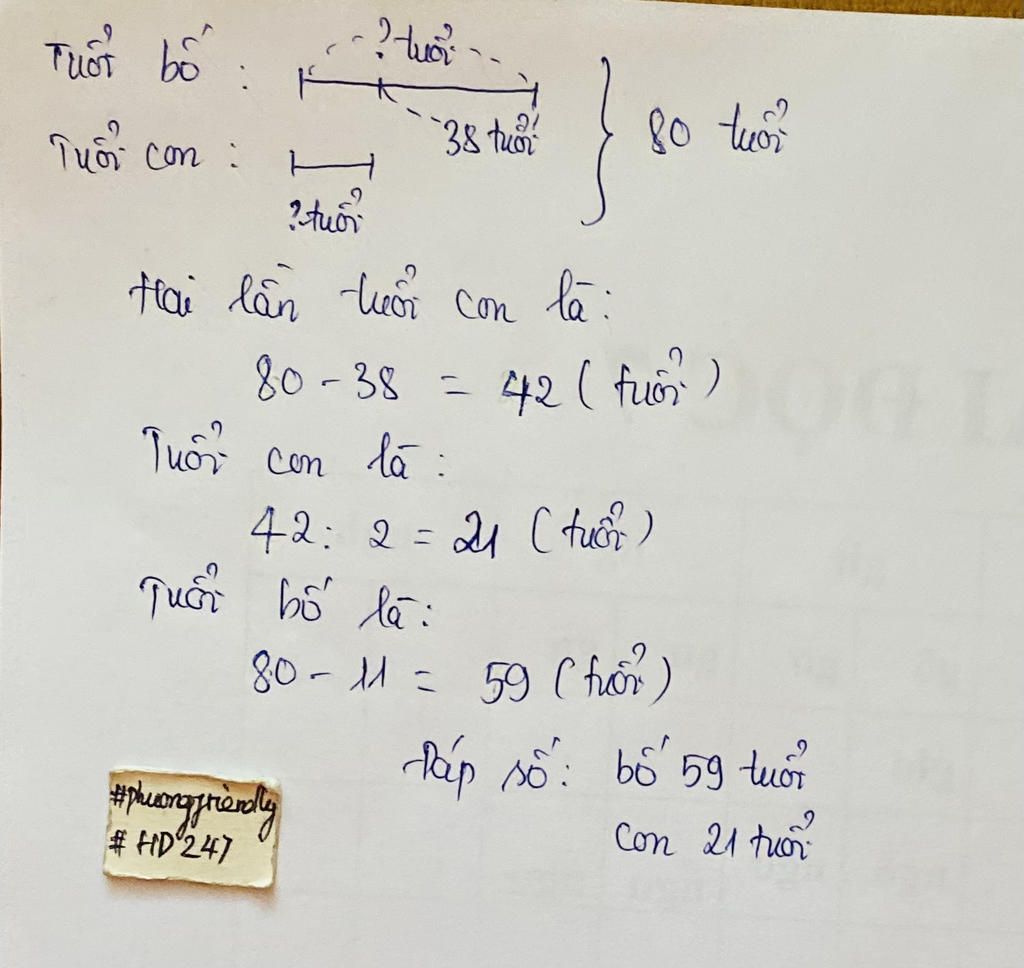 ? tuổi
Tuổi bố :
38 tuổi
80 tuổi
Tuổi con :
? tuổi
Hai lần tuổi con là:
80 - 38 = 42 ( tuổi )
Tuổi con là :
42 : 2 = 21 ( tuổi )
Tuổi bố là :
80 - 11 = 59 ( tuổi )
Đáp số : bố 59 tuổi
con 21 tuổi
#phuongfriendly
# HD 247